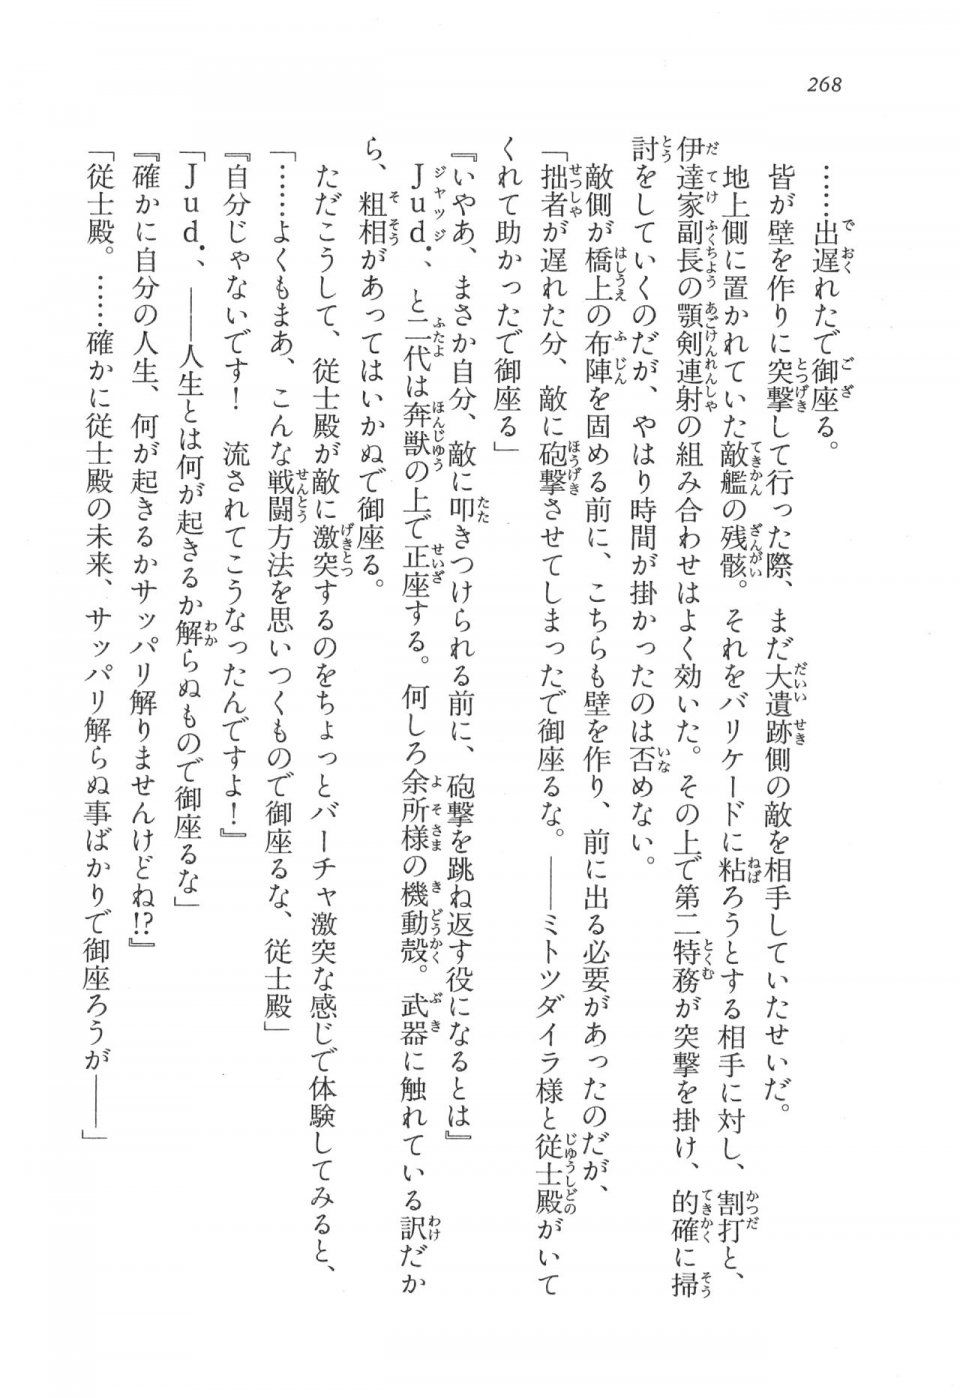 268
……出遅れたで御座る。
皆が壁を作りに突撃して行った際、まだ大遺跡側の敵を相手していたせいだ。
地上側に置かれていた敵艦の残骸。それをバリケードに粘ろうとする相手に対し、割打と、
伊達家副長の顎剣連射の組み合わせはよく効いた。その上で第二特務が突撃を掛け、的確に掃
討をしていくのだが、やはり時間が掛かったのは否めない。
敵側が橋上の布陣を固める前に、こちらも壁を作り、前に出る必要があったのだが、
「拙者が遅れた分、敵に砲撃させてしまったで御座るな。――ミトツダイラ様と従士殿がいて
くれて助かったで御座る」
『いやあ、まさか自分、敵に叩きつけられる前に、砲撃を跳ね返す役になるとは』
Jud.、と二代は奔獣の上で正座する。何しろ余所様の機動殻。武器に触れている訳だか
ら、粗相があってはいかぬで御座る。
ただこうして、従士殿が敵に激突するのをちょっとバーチャ激突な感じで体験してみると、
「……よくもまあ、こんな戦闘方法を思いつくもので御座るな、従士殿」
『自分じゃないです！　流されてこうなったんですよ！』
「Jud.、――人生とは何が起きるか解らぬもので御座るな」
『確かに自分の人生、何が起きるかサッパリ解りませんけどね!?』
「従士殿。……確かに従士殿の未来、サッパリ解らぬ事ばかりで御座ろうが――」